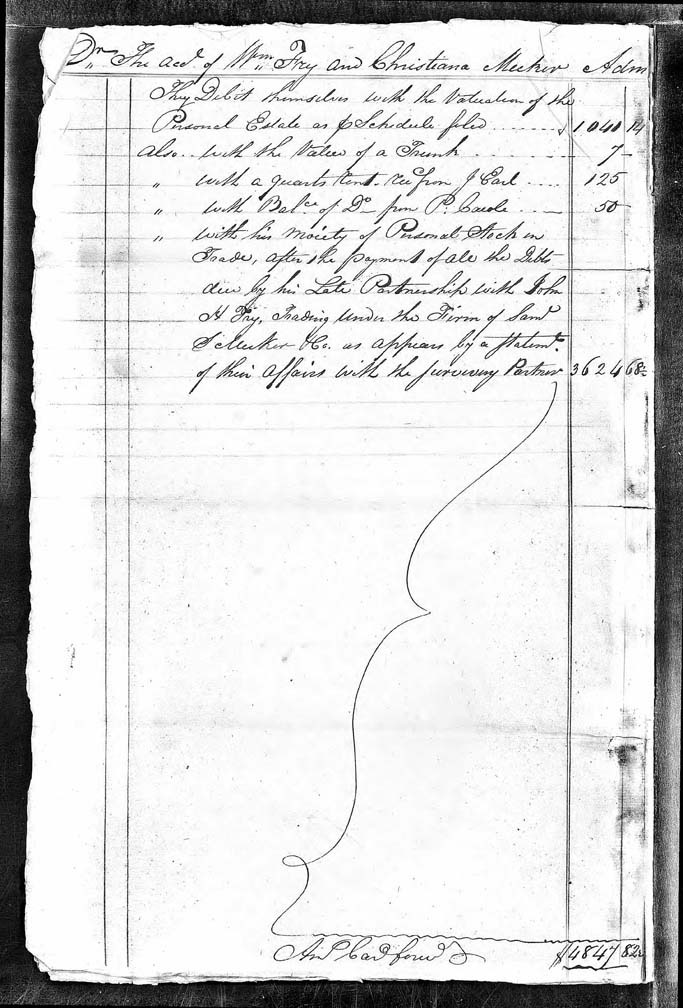 Dr,, The acct. of Wm,, Fry and Christiana Meeker Adm
They Debit themselves with the Valuation of the
Personal Estate as p Schedule filed ........ $ 1040 14
Also.. with the Value of a Trunk . ........ 7 –
,, with a quarts Rent. rec from J Earl .... 125
,, with Balce. of Do – from P. Care .... 50 –
,, with his Moiety of Personal Stock in
Trade, after the payment of all the Debts
due by his Late Partnership with John
H Fry, Trading Under the Firm of Saml
S Meeker & Co. as appears by a Statemt.
of their Affairs with the surviving Partner 3624 68
Amt Card forwd $ 4847 82